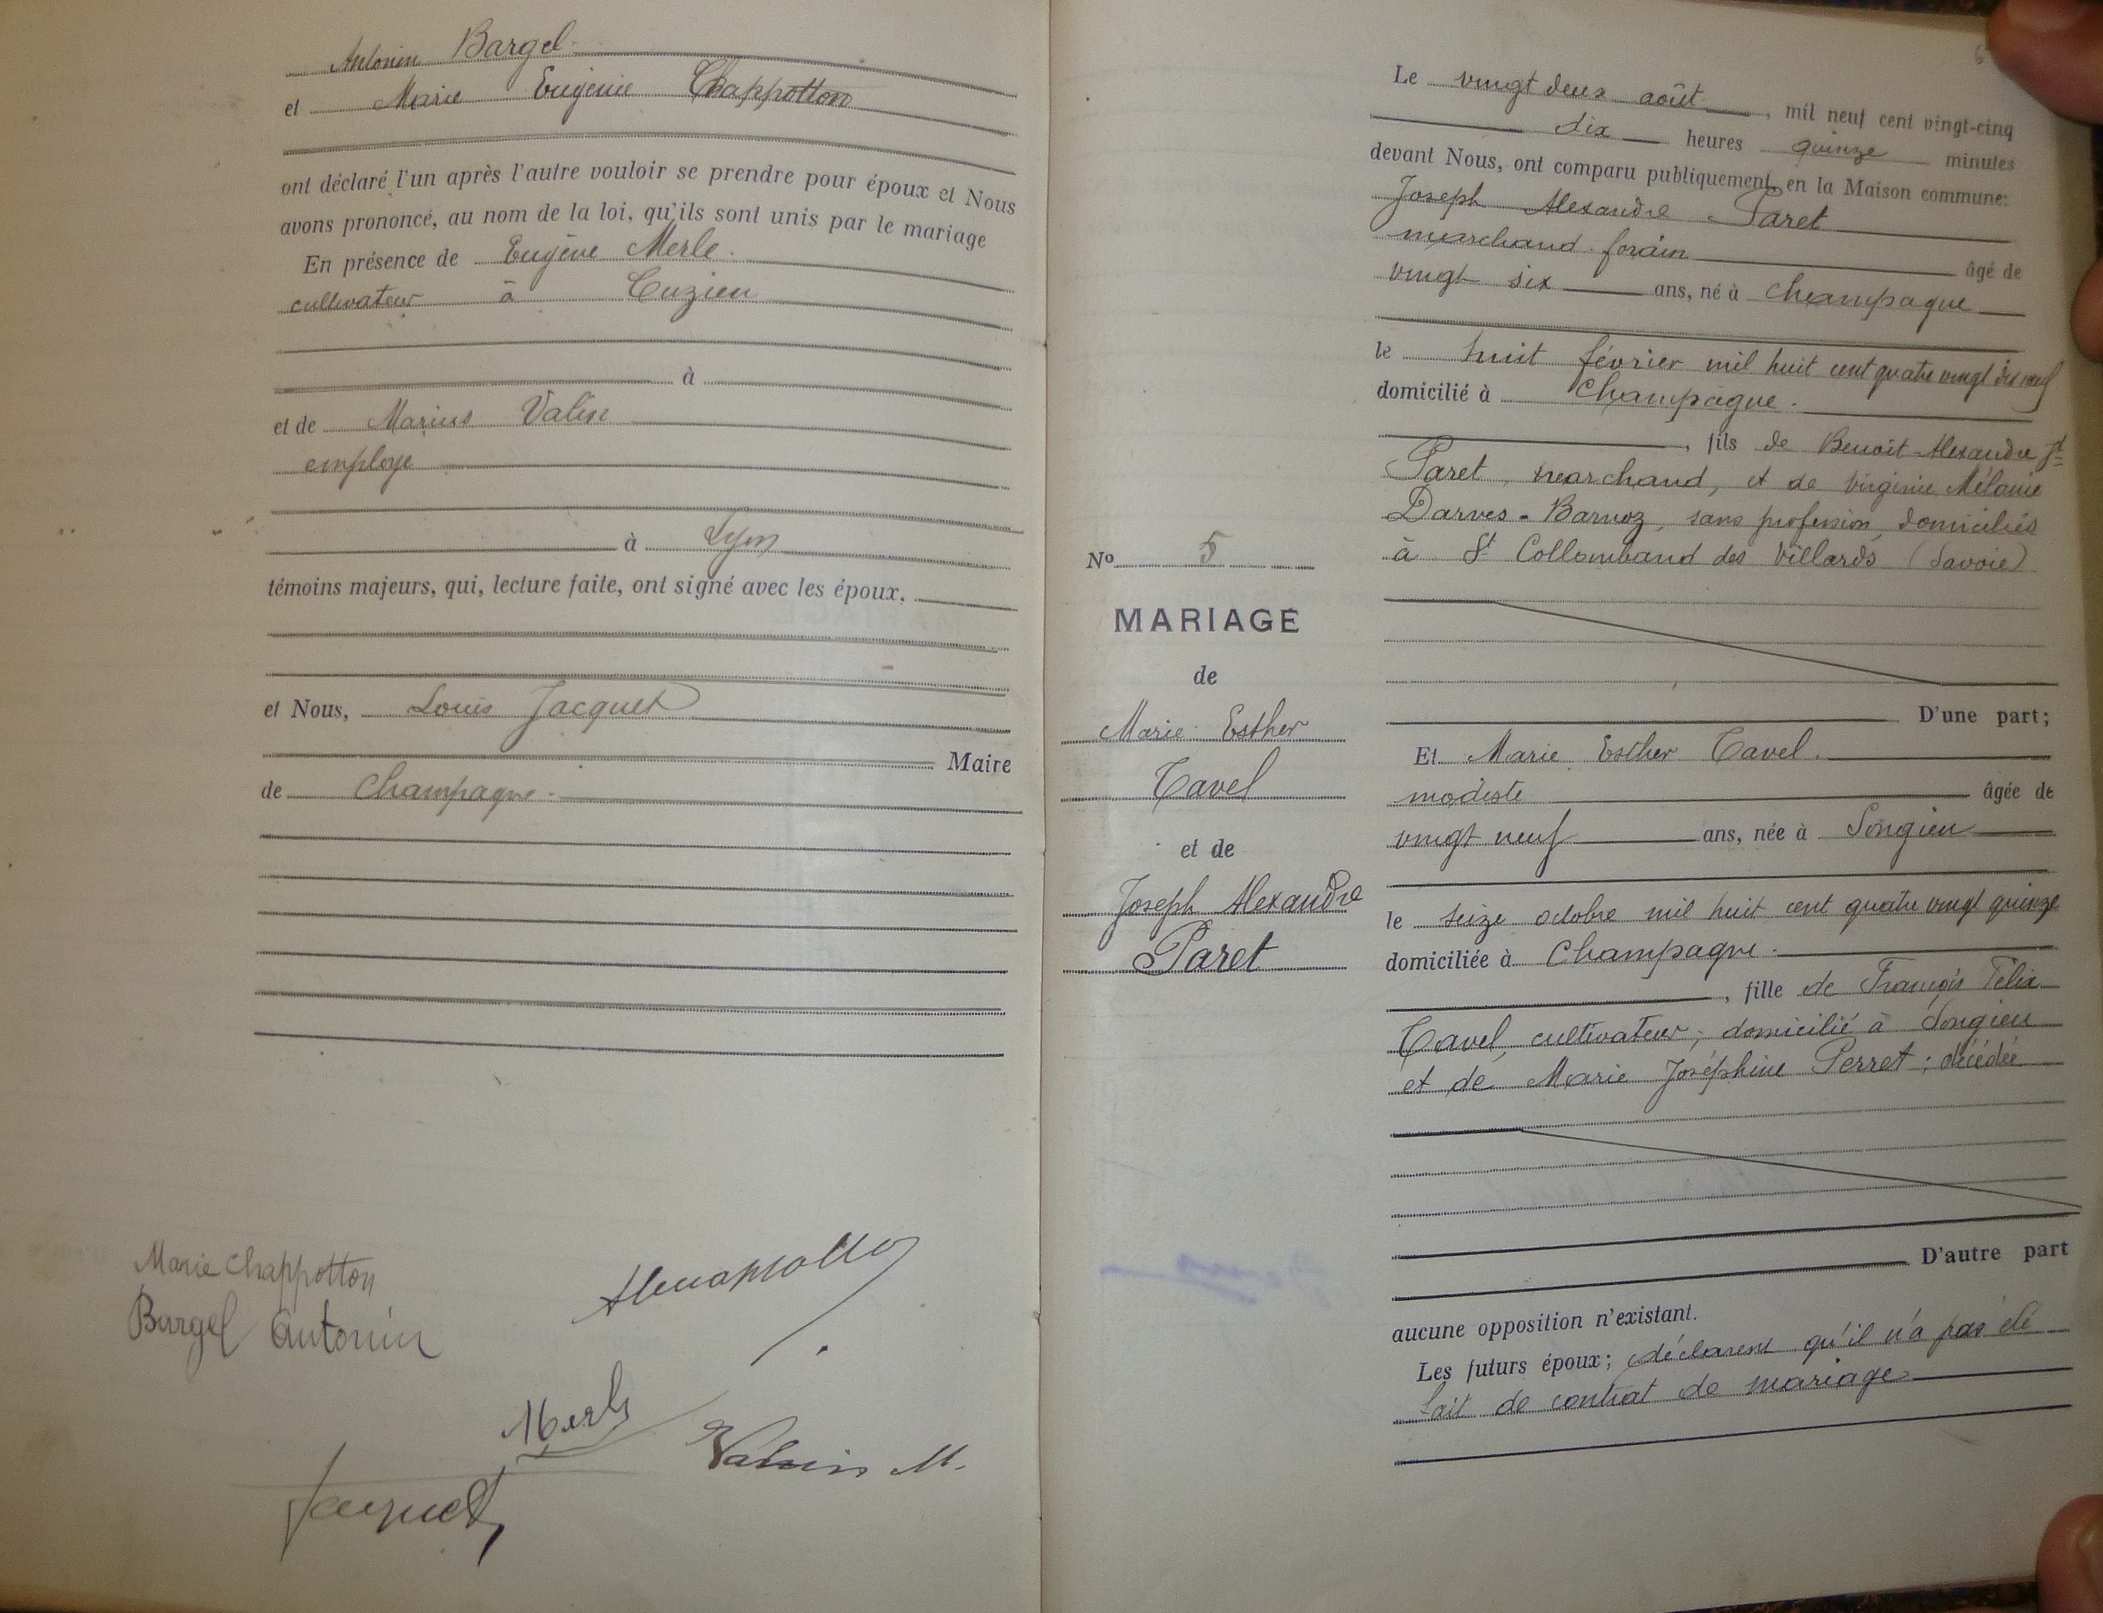 Antonin Bargel
et Marie Eugénie Chappotton
ont déclaré l'un après l'autre vouloir se prendre pour époux et Nous
avons prononcé, au nom de la loi, qu'ils sont unis par le mariage
En présence de Eugène Merle
cultivateur à Cuzieu
à
et de Marius Valin
employe
à Lyon
témoins majeurs, qui, lecture faite, ont signé avec les époux,
et Nous, Louis Jacquet
Maire
de Champagne
Marie Chappotton
Bargel Antonin
Merle
Jacquet
M.
Le vingt deux août, mil neuf cent vingt-cinq
dix heures quinze minutes
devant Nous, ont comparu publiquement, en la Maison commune:
Joseph Alexandre Paret
marchand forain âgé de
vingt six ans, né à Champagne
le huit février mil huit cent quatre vingt dix neuf
domicilié à Champagne.
, fils de Benoît Alexandre Jh
Paret, marchand, et de Virginie Mélanie
Darves-Barnoz, sans profession, domiciliés
à St Collomband des Villards (Savoie)
D'une part;
Et Marie Esther Tavel.
modiste âgée de
vingt neuf ans, née à Songieu
le seize octobre mil huit cent quatre vingt quinze
domiciliée à Champagne.
, fille de François Félix
Tavel, cultivateur, domicilié à Songieu
et de Marie Joséphine Perret; décédée
D'autre part
aucune opposition n'existant.
Les futurs époux; déclarent qu'il n'a pas été
fait de contrat de mariage
No 5
MARIAGE
de
Marie Esther
Tavel
et de
Joseph Alexandre
Paret